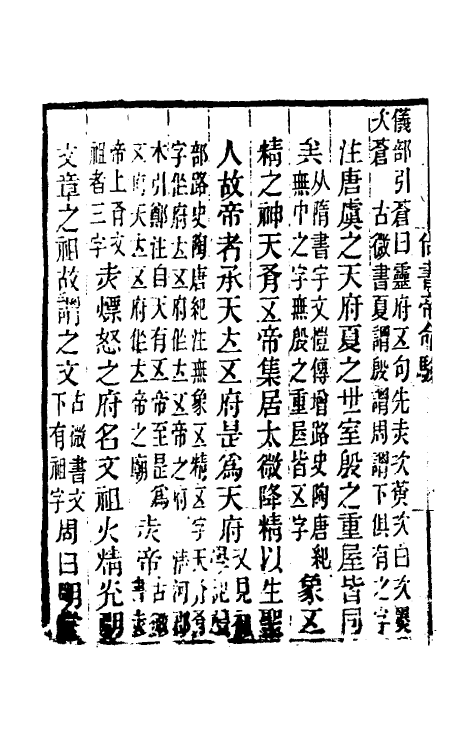 尚書帝命驗
儀部引蒼曰靈府五句先赤次黃次白次黑
次蒼　古微書夏謂殷謂周謂下俱有之字
注唐虞之天府夏之世室殷之重屋皆同
矣
從隋書宇文愷傳增路史陶唐紀
無巾之字無殷之重屋皆五字
象五
精之神天有五帝集居太微降精以生聖
人故帝者承天立五府是為天府
又見
學紀
部路史陶唐紀注無象五精五字天有
字作府立五府作立五帝之府　清河郡
本引鄭注自天有五帝至是為
五府天立五府作立帝之廟
赤帝
古微
書赤
帝上有文
祖者三字
赤熛怒之府名文祖火精光明
文章之祖故謂之文
古微書文
下有祖字
周曰明